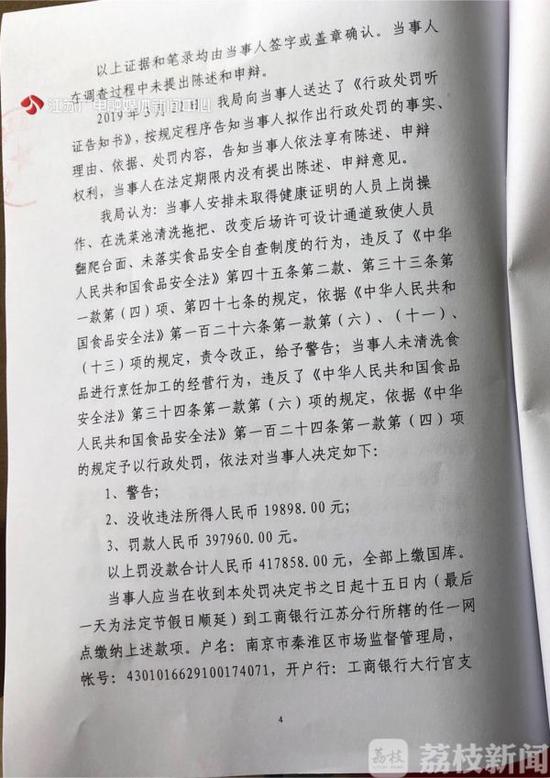 以上证据和笔录均由当事人签字或盖章确认。当事人
在调查过程中未提出陈述和申辩。
江苏广电融媒体新闻中心
2019年3月21日，我局向当事人送达了《行政处罚听
证告知书》，按规定程序告知当事人拟作出行政处罚的事实、
理由、依据、处罚内容，告知当事人依法享有陈述、申辩
权利，当事人在法定期限内没有提出陈述、申辩意见。
我局认为：当事人安排未取得健康证明的人员上岗操
作、在洗菜池清洗拖把、改变后场许可设计通道致使人员
翻爬台面、未落实食品安全自查制度的行为，违反了《中华
人民共和国食品安全法》第四十五条第二款、第三十三条第
一款第（四）项、第四十七条的规定，依据《中华人民共和
国食品安全法》第一百二十六条第一款第（六）、（十一）、
（十三）项的规定，责令改正，给予警告；当事人未清洗食
品进行烹饪加工的经营行为，违反了《中华人民共和国食品
安全法》第三十四条第一款第（六）项的规定，依据《中华
人民共和国食品安全法》第一百二十四条第一款第（四）项
的规定予以行政处罚，依法对当事人决定如下：
1、警告；
2、没收违法所得人民币 19898.00 元；
3、罚款人民币 397960.00 元。
以上罚没款合计人民币 417858.00 元，全部上缴国库。
当事人应当在收到本处罚决定书之日起十五日内（最后
一天为法定节假日顺延）到工商银行江苏分行所辖的任一网
点缴纳上述款项。户名：南京市秦淮区市场监督管理局，
帐号：4301016629100174071，开户行：工商银行大行宫支
4
荔枝
荔枝新闻